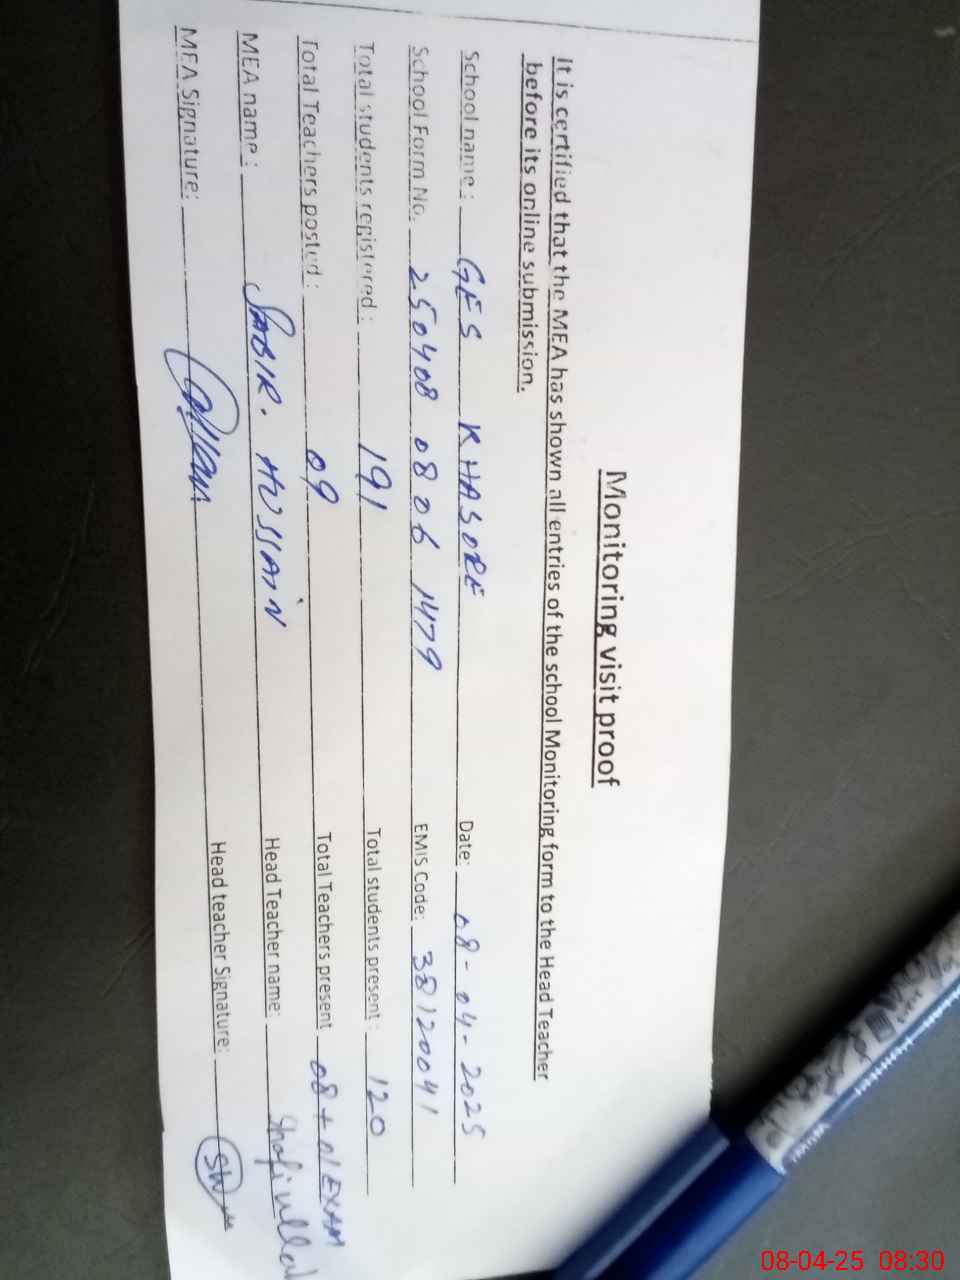 Monitoring visit proof
It is certified that the MEA has shown all entries of the school Monitoring form to the Head Teacher
before its online submission.
School name : GES KHASORE Date: 08-04-2025
School Form No. 250408 0806 1479 EMIS Code: 38120041
Total students registered : 191 Total students present : 120
Total Teachers posted : 09 Total Teachers present 08 + 01 EXAM
MEA name : SABIR. HUSSAIN Head Teacher name: Shafiullah
MEA Signature: Head teacher Signature:
08-04-25 08:30